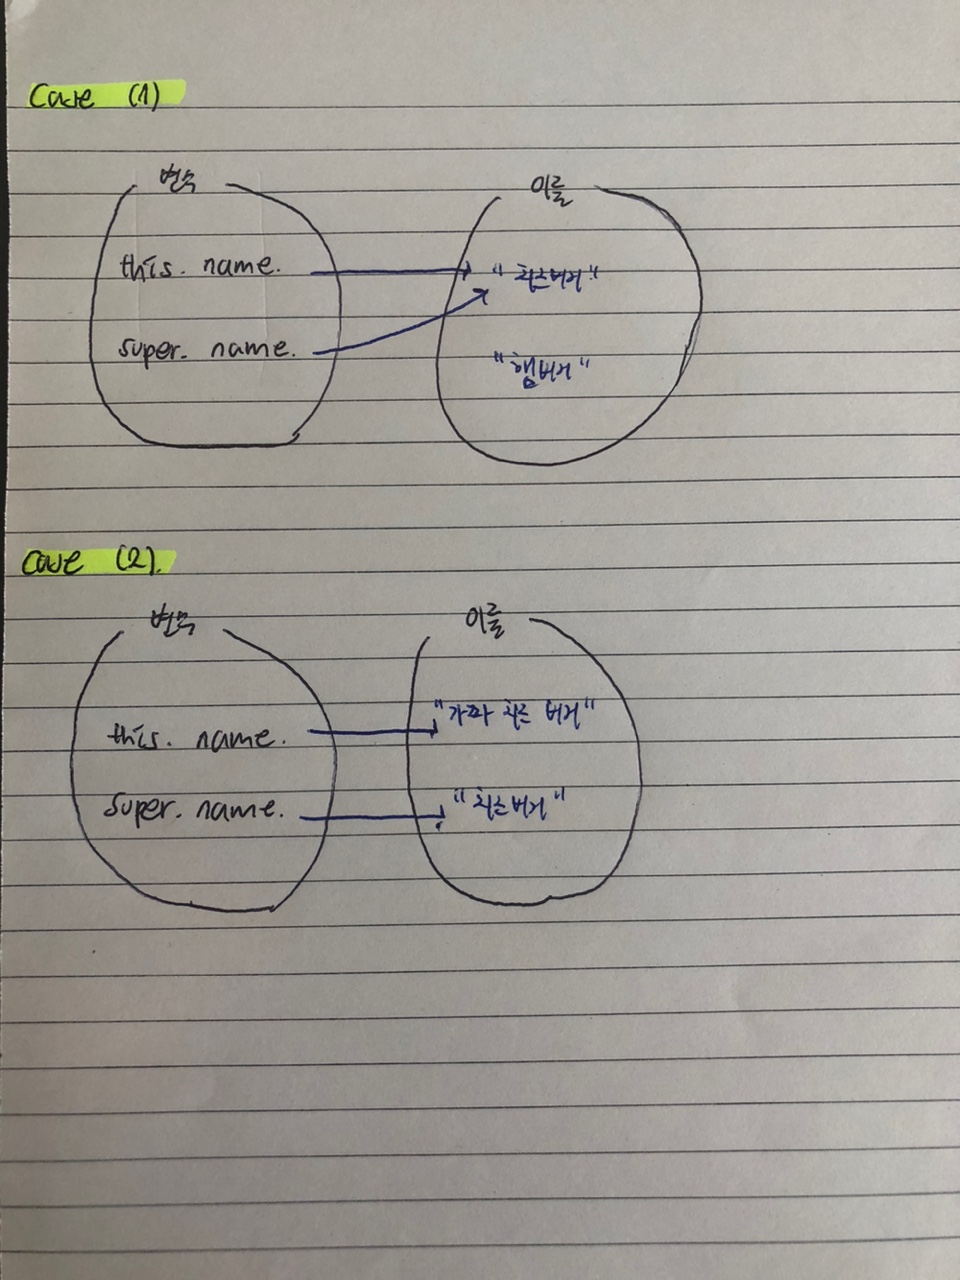 Case (1)
변수
이름
this. name.
"치즈버거"
super. name.
"햄버거"
Case (2).
변수
이름
"가짜 치즈 버거"
this. name.
super. name.
"치즈버거"